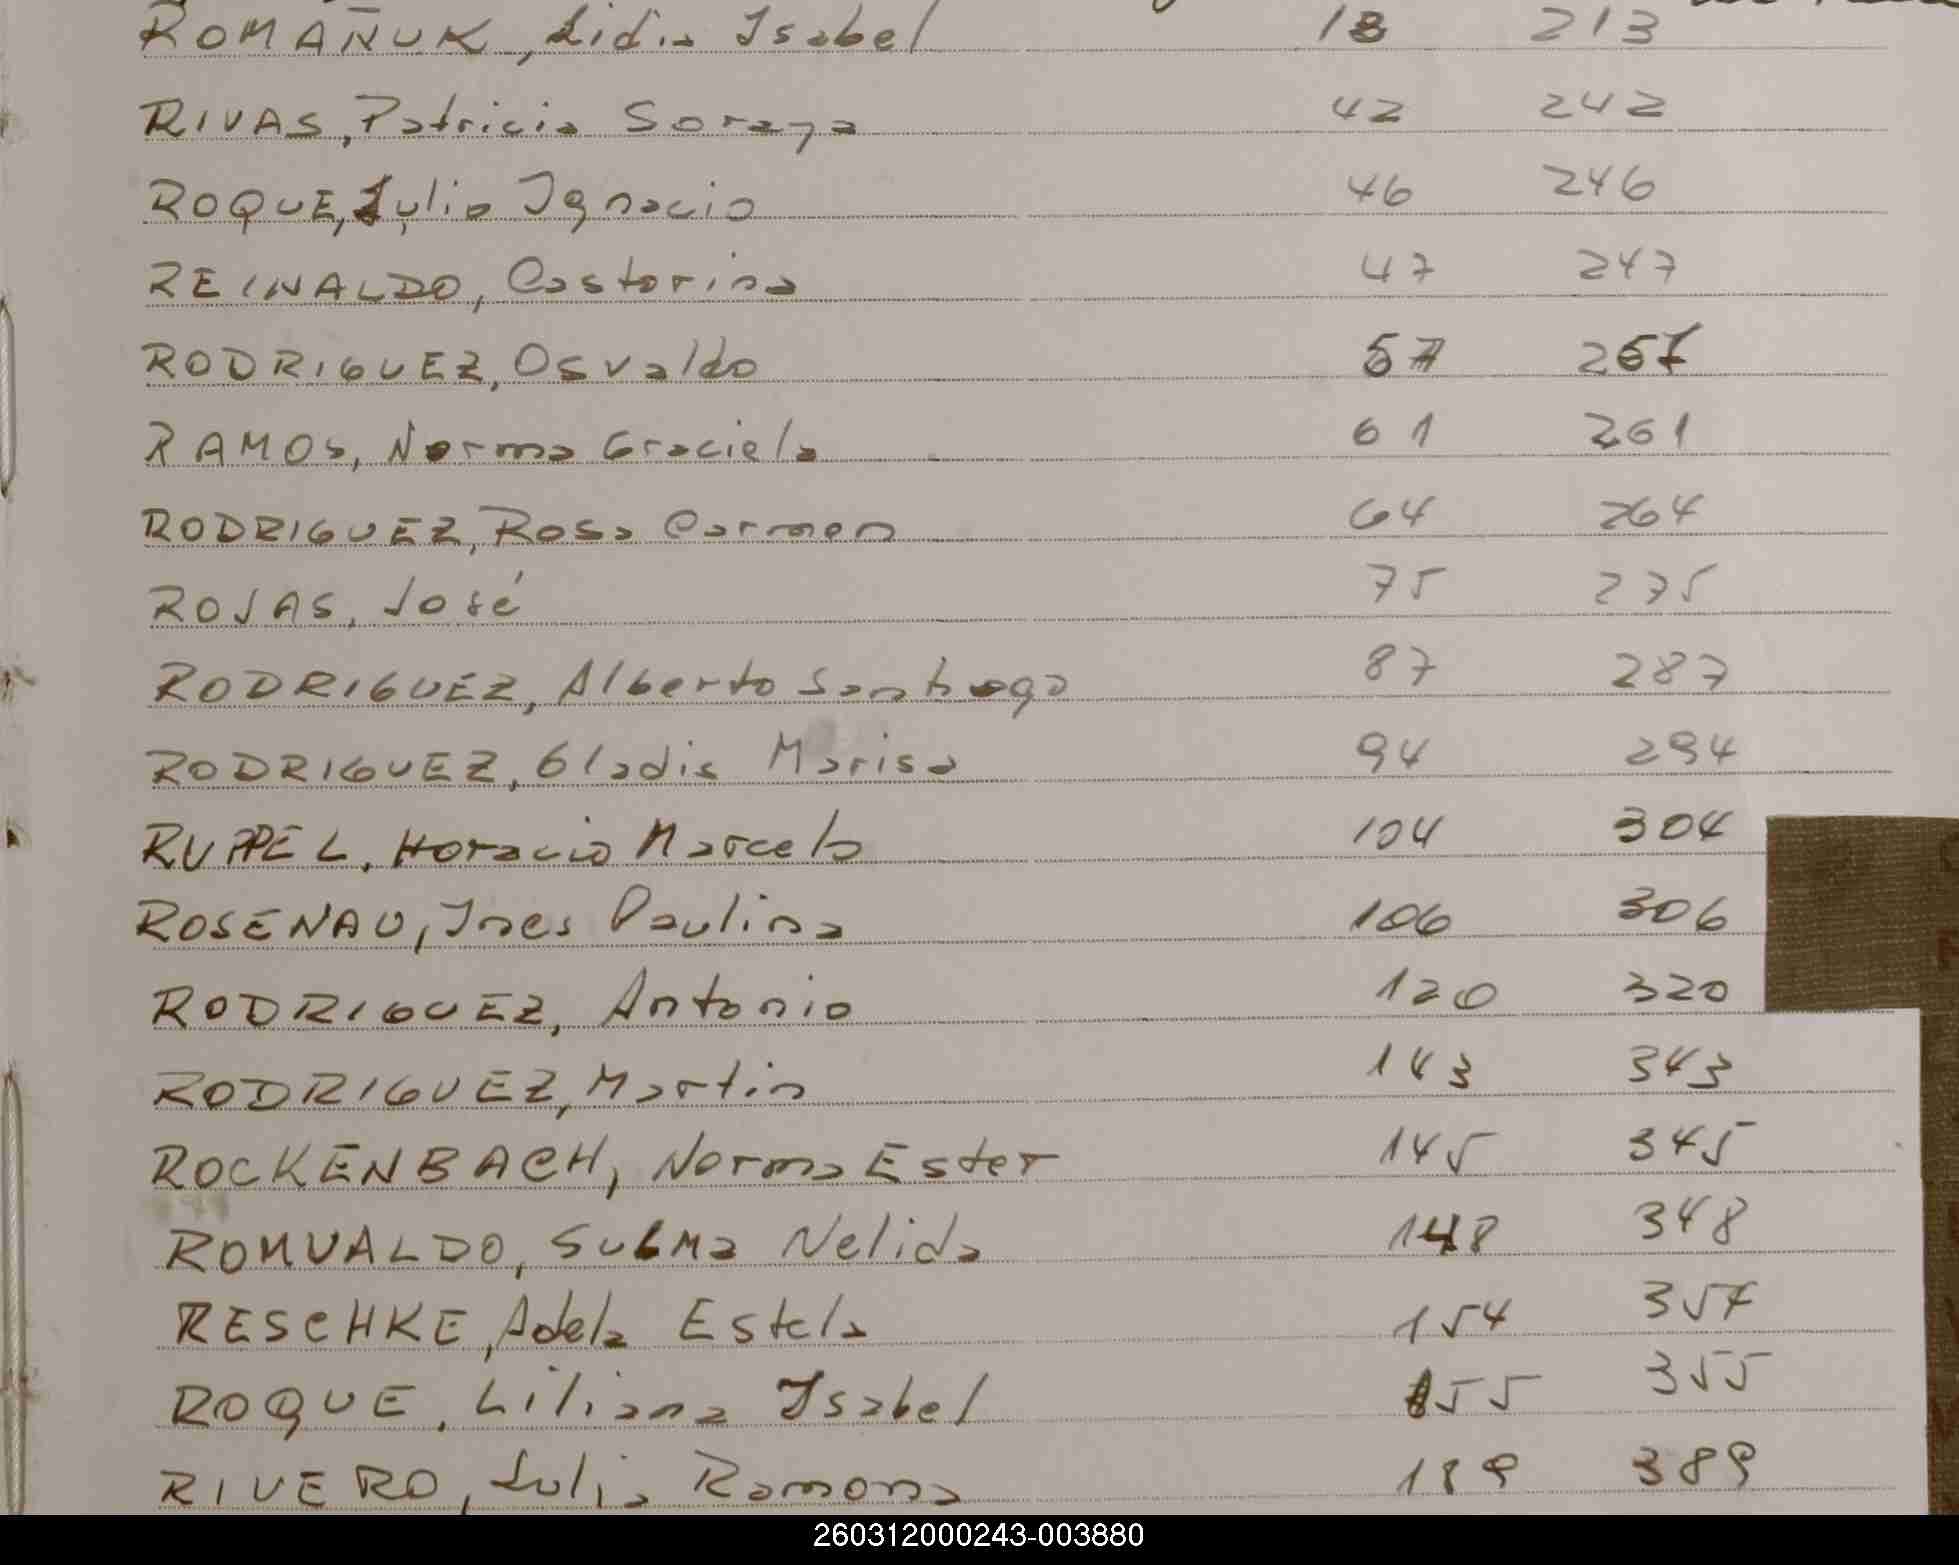 ROMAÑUK, Lidia Isabel 13 213
RIVAS, Patricia Soraya 42 242
ROQUE, Julio Ignacio 46 246
REINALDO, Castorina 47 247
RODRIGUEZ, Osvaldo 57 257
RAMOS, Norma Graciela 61 261
RODRIGUEZ, Rosa Carmen 64 264
ROJAS, José 75 275
RODRIGUEZ, Alberto Santiago 87 287
RODRIGUEZ, Gladis Marisa 94 294
RUPPEL, Horacio Marcelo 104 304
ROSENAU, Ines Paulina 106 306
RODRIGUEZ, Antonio 120 320
RODRIGUEZ, Martin 143 343
ROCKENBACH, Norma Ester 145 345
ROMUALDO, Sulma Nelida 148 348
RESCHKE, Adela Estela 154 357
ROQUE, Liliana Isabel 155 355
RIVERO, Julia Ramona 189 389
260312000243-003880